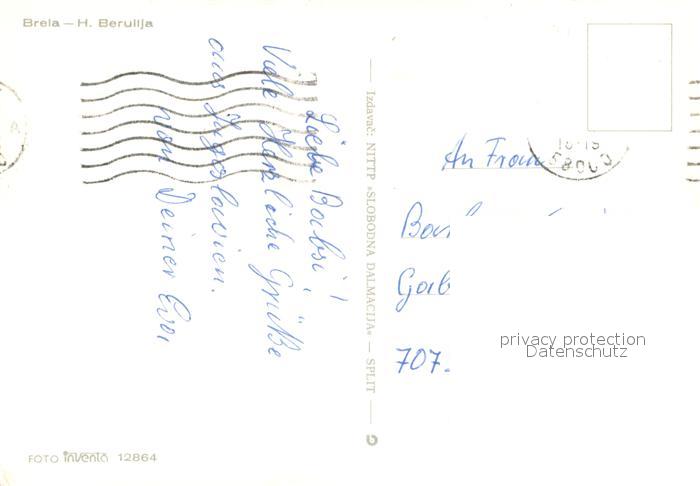 Brela — H. Berulija
Liebe Babsi!
Viele Herzliche Grüße
aus Jugoslawien.
von Deiner Eva
Izdavač: NITTP »SLOBODNA DALMACIJA« — SPLIT
An Frau
707.
privacy protection
Datenschutz
FOTO inventa 12864